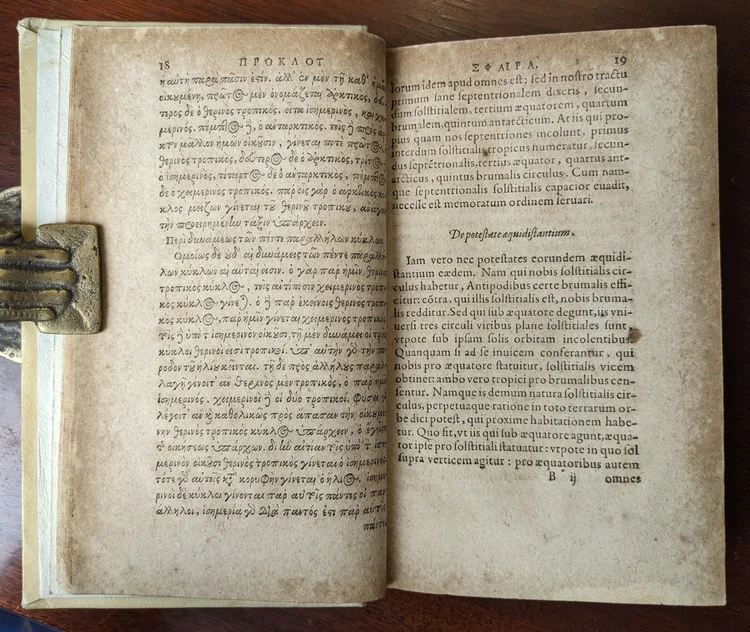 18 ΠΡΟΚΛΟΥ
ἡ αὐτὴ παρὰ πᾶσιν ἐστίν. ἀλλ' ἐν μὲν τῇ καθ' ἡμᾶς
οἰκουμένῃ, πρῶτος μὲν ὀνομάζεται ἀρκτικός, δεύ
τερος δὲ ὁ θερινὸς τροπικός. εἶτα ἰσημερινὸς, καὶ
μερινός. πέμπτος ὁ ἀνταρκτικός. τοῖς
μᾶλλον ἡμῶν οἰκοῦσιν, γίνεταί ποτε πρῶτος
θερινὸς τροπικὸς, δεύτερος δὲ ὁ ἀρκτικὸς, τρίτος
ὁ ἰσημερινὸς, τέταρτος δὲ ὁ ἀνταρκτικὸς, πέμπτος
δὲ ὁ χειμερινὸς τροπικός. παρ' οἷς γὰρ ὁ ἀρκτικὸς κύ
κλος μείζων γίνεται τοῦ θερινοῦ τροπικοῦ, ἀνάγκη
τὴν προειρημένην τάξιν ὑπάρχειν.
Περὶ δυνάμεως τῶν πέντε παραλλήλων κύκλων.
Ὁμοίως δὲ οὐδ' αἱ δυνάμεις τῶν πέντε παραλ
λήλων κύκλων αἱ αὐταί εἰσιν. ὁ γὰρ παρ' ἡμῖν θερινὸς
τροπικὸς κύκλος, τοῖς ἀντίποσιν χειμερινὸς τροπι
κὸς κύκλος γίνεται. ὁ παρ' ἐκείνοις θερινὸς τροπι
κὸς κύκλος, παρ' ἡμῖν γίνεται χειμερινὸς τροπικός.
τοῖς ὑπὸ τὸν ἰσημερινὸν οἰκοῦσι, τῇ μὲν δυνάμει οἱ τρεῖς
κύκλοι θερινοί εἰσι τροπικοί. ὑπ' αὐτὴν γὰρ τὴν πά
ροδον τοῦ ἡλίου κεῖνται. τῇ δὲ πρὸς ἀλλήλους παραλ
λαγῇ γένοιτ' ἂν θερινὸς μὲν τροπικὸς, ὁ παρ' ἡμῖν
ἰσημερινός. χειμερινοὶ οἱ δύο τροπικοί. Φύσει
λέγοιτ' ἂν καθολικῶς πρὸς ἅπασαν τὴν οἰκουμέ
νην θερινὸς τροπικὸς κύκλος ὑπάρχειν, ὁ ἔγγιστα
τ οἰκήσεως ὑπάρχων. δι' ἣν αἰτίαν τοῖς ὑπὸ τ ἰση
μερινὸν οἰκοῦσι θερινὸς τροπικὸς γίνεται ὁ ἰσημερινός
τότε γὰρ αὐτοῖς κατὰ κορυφὴν γίνεται ὁ ἥλιος, ἰσημε
ρινοὶ δὲ κύκλοι γίνονται παρ' αὐτοῖς πάντες οἱ παρ
άλληλοι, ἰσημερία γὰρ διὰ παντὸς ἐστι παρ' αὐτοῖς
παντὶ
ΣΦΑΙΡΑ. 19
lorum idem apud omnes est; sed in nostro tractu
primum sane septentrionalem dixeris, secun-
dum solstitialem, tertium æquatorem, quartum
brumalem, quintum antarcticum. At iis qui pro-
pius quam nos septentriones incolunt, primus
interdum solstitialis tropicus numeratur, secun-
dus septẽtrionalis, tertius æquator, quartus ant-
arcticus, quintus brumalis circulus. Cum nam-
que septentrionalis solstitialis capacior euadit,
necesse est memoratum ordinem seruari.
De potestate æquidistantium.
Iam vero nec potestates eorundem æquidi-
stantium eædem. Nam qui nobis solstitialis cir-
culus habetur, Antipodibus certe brumalis effi-
citur: cõtra, qui illis solstitialis est, nobis bruma-
lis redditur. Sed qui sub æquatore degunt, iis vni-
uersi tres circuli viribus plane solstitiales sunt,
vtpote sub ipsam solis orbitam incolentibus.
Quanquam si ad se inuicem conferantur, qui
nobis pro æquatore statuitur, solstitialis vicem
obtinet: ambo vero tropici pro brumalibus cen-
sentur. Namque is demum natura solstitialis cir-
culus, perpetuaque ratione in toto terrarum or-
be dici potest, qui proxime habitationem habe-
tur. Quo fit, vt iis qui sub æquatore agunt, æqua-
tor ipse pro solstitiali statuatur: vtpote in quo sol
supra verticem agitur: pro æquatoribus autem
B ij omnes